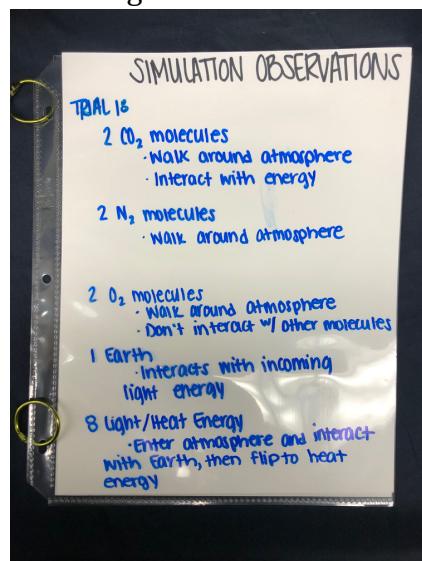 SIMULATION OBSERVATIONS
TRIAL 1:
2 CO₂ molecules
· Walk around atmosphere
· Interact with energy
2 N₂ molecules
· Walk around atmosphere
2 O₂ molecules
· Walk around atmosphere
· Don't interact w/ other molecules
1 Earth
· Interacts with incoming
light energy
8 Light/Heat Energy
· Enter atmosphere and interact
with Earth, then flip to heat
energy